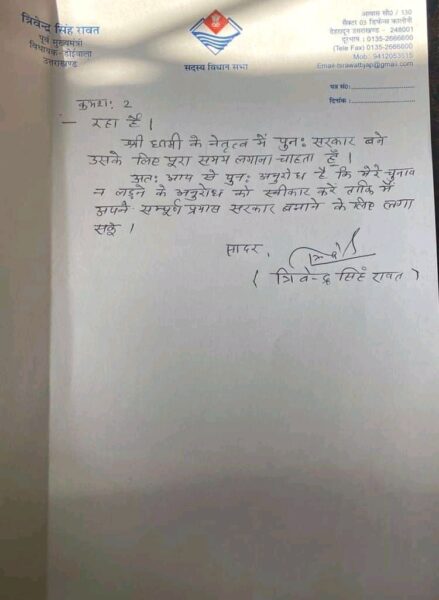 त्रिवेन्द्र सिंह रावत
पूर्व मुख्यमंत्री
विधायक - डोईवाला
उत्तराखण्ड
सदस्य विधान सभा
आवास सी0 / 130
सैक्टर 03 डिफेन्स कालोनी
देहरादून उत्तराखण्ड - 248001
दूरभाष : 0135-2666600
(Tele Fax) 0135-2666600
Mob : 9412053515
Email-tsrawatbjp@gmail.com
पत्र सं0:
दिनांक :
क्रमशः 2
— रहा हूँ।
श्री धामी के नेतृत्व में पुनः सरकार बने
उसके लिए पूरा समय लगाना चाहता हूँ।
अतः आप से पुनः अनुरोध है कि मेरे चुनाव
न लड़ने के अनुरोध को स्वीकार करें ताकि मैं
अपने सम्पूर्ण प्रयास सरकार बनाने के लिए लगा
सकूं।
सादर,
( त्रिवेन्द्र सिंह रावत )